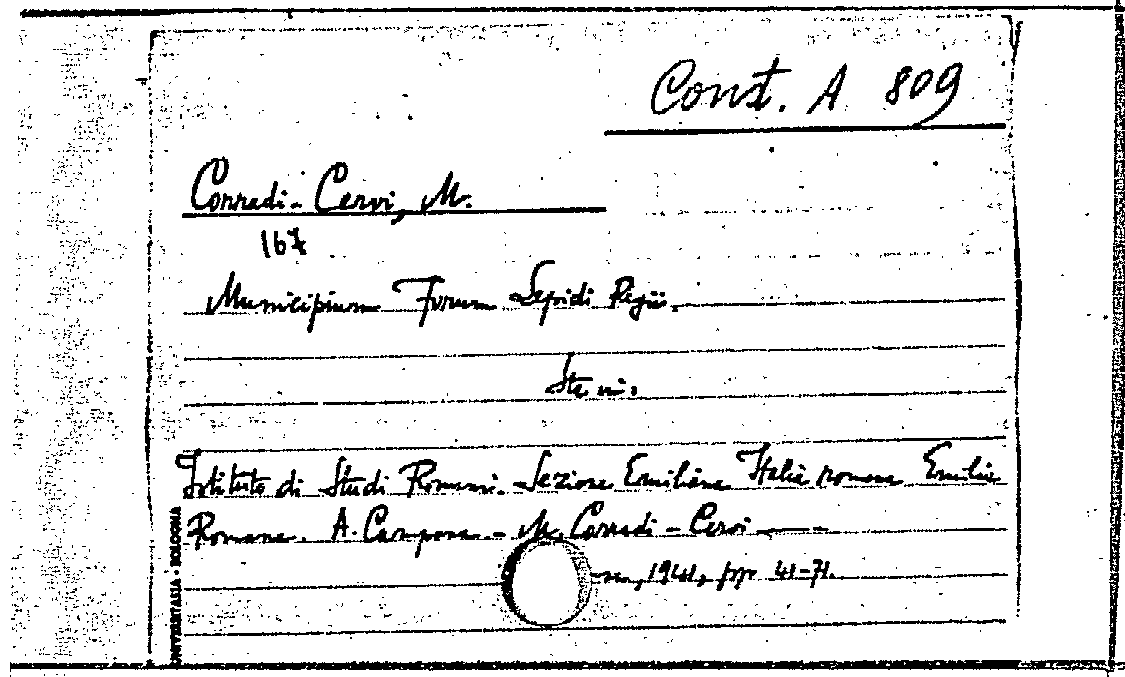 Const. A 809
Corradi-Cervi, M.
167
Municipium Forum Lepidi Regii.
Istituto di Studi Romani. Sezione Emiliana Italia romana Emilia
Romana. A. Campana - M. Corradi - Cervi
1941, pp. 41-71.
UNIVERITASIA - BOLOGNA